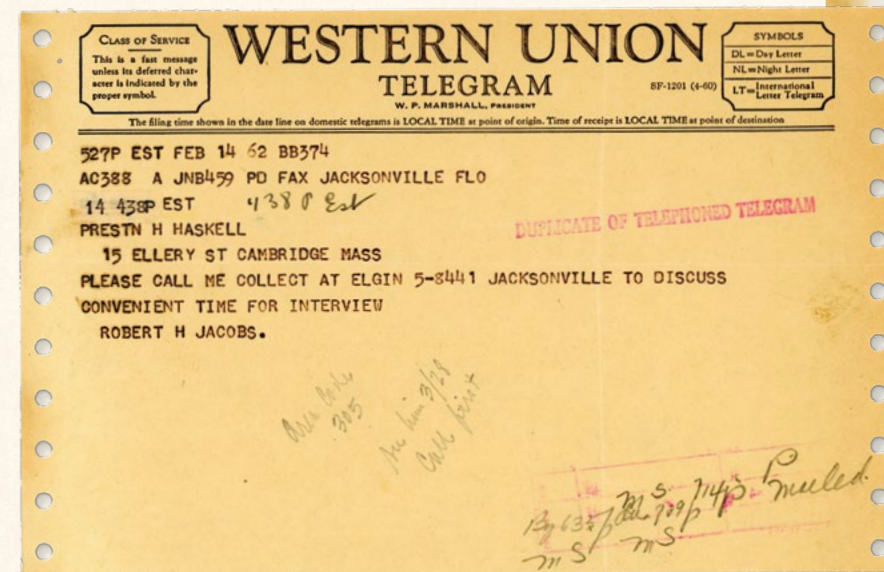 CLASS OF SERVICE
This is a fast message
unless its deferred char-
acter is indicated by the
proper symbol.
WESTERN UNION
TELEGRAM
W. P. MARSHALL, PRESIDENT
SF-1201 (4-60)
SYMBOLS
DL=Day Letter
NL=Night Letter
LT=International
Letter Telegram
The filing time shown in the date line on domestic telegrams is LOCAL TIME at point of origin. Time of receipt is LOCAL TIME at point of destination
527P EST FEB 14 62 BB374
AC388 A JNB459 PD FAX JACKSONVILLE FLO
14 438P EST 438 P Est
DUPLICATE OF TELEPHONED TELEGRAM
PRESTN H HASKELL
15 ELLERY ST CAMBRIDGE MASS
PLEASE CALL ME COLLECT AT ELGIN 5-8441 JACKSONVILLE TO DISCUSS
CONVENIENT TIME FOR INTERVIEW
ROBERT H JACOBS.
Area Code
305
see him 3/28
Call first
MS 714p P mailed.
By 635p 709p
MS MS